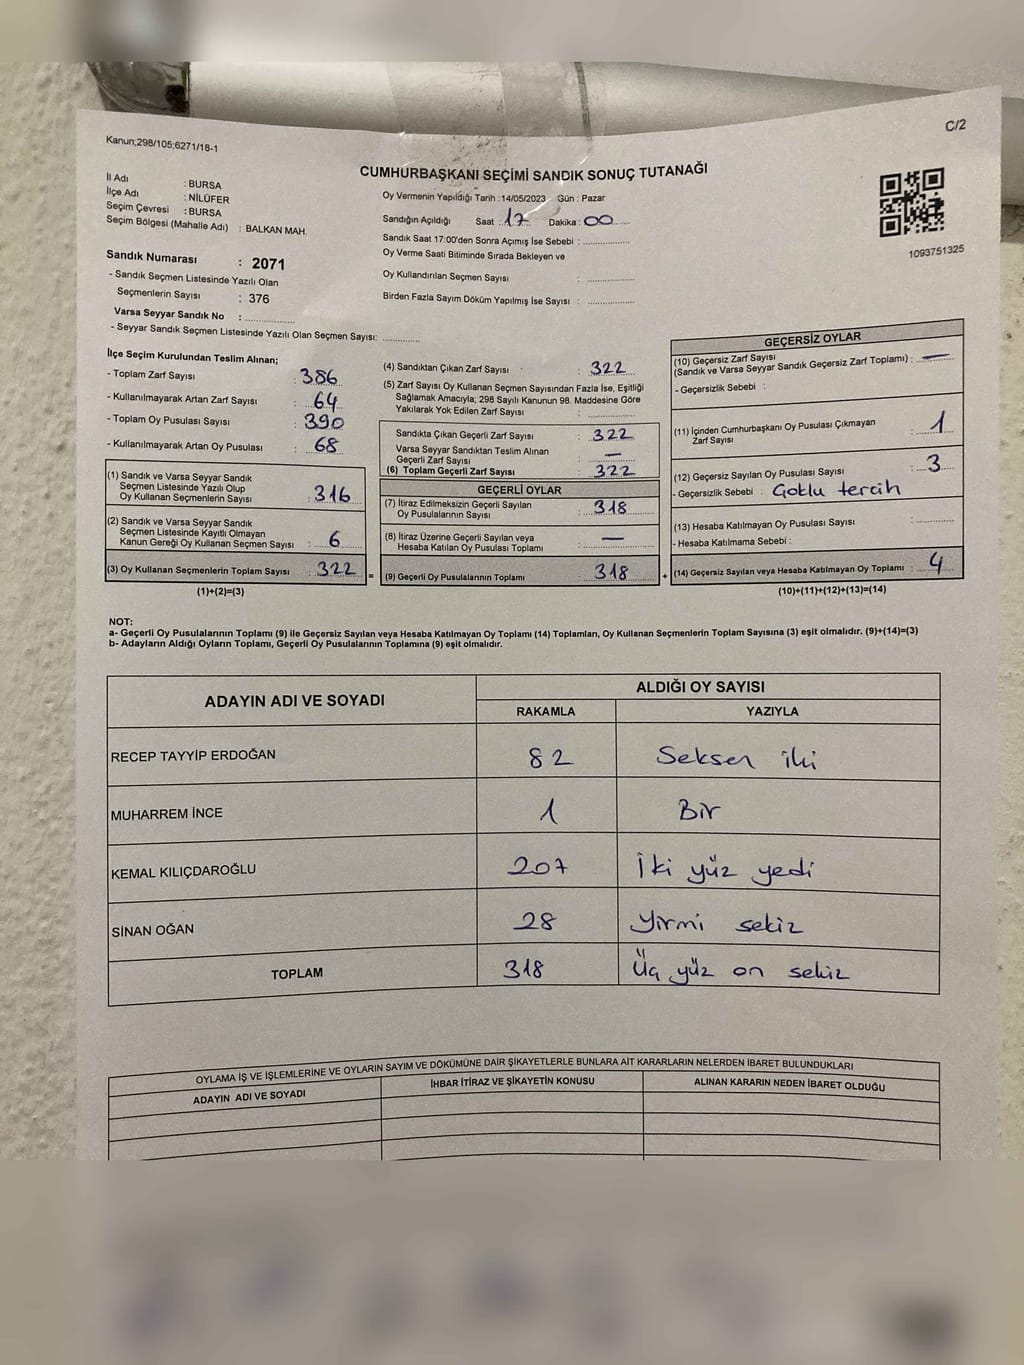 C/2
Kanun;298/105;6271/18-1
CUMHURBAŞKANI SEÇİMİ SANDIK SONUÇ TUTANAĞI
İl Adı : BURSA
İlçe Adı : NİLÜFER
Seçim Çevresi : BURSA
Seçim Bölgesi (Mahalle Adı) : BALKAN MAH.
Oy Vermenin Yapıldığı Tarih : 14/05/2023 Gün : Pazar
Sandığın Açıldığı Saat : 17 Dakika : 00
Sandık Saat 17:00'den Sonra Açımış İse Sebebi :
Oy Verme Saati Bitiminde Sırada Bekleyen ve
Oy Kullandırılan Seçmen Sayısı :
Birden Fazla Sayım Döküm Yapılmış İse Sayısı :
1093751325
Sandık Numarası : 2071
- Sandık Seçmen Listesinde Yazılı Olan
Seçmenlerin Sayısı : 376
Varsa Seyyar Sandık No :
- Seyyar Sandık Seçmen Listesinde Yazılı Olan Seçmen Sayısı:
İlçe Seçim Kurulundan Teslim Alınan;
- Toplam Zarf Sayısı : 386
- Kullanılmayarak Artan Zarf Sayısı : 64
- Toplam Oy Pusulası Sayısı : 390
- Kullanılmayarak Artan Oy Pusulası : 68
(1) Sandık ve Varsa Seyyar Sandık
Seçmen Listesinde Yazılı Olup
Oy Kullanan Seçmenlerin Sayısı : 316
(2) Sandık ve Varsa Seyyar Sandık
Seçmen Listesinde Kayıtlı Olmayan
Kanun Gereği Oy Kullanan Seçmen Sayısı : 6
(3) Oy Kullanan Seçmenlerin Toplam Sayısı : 322
(1)+(2)=(3)
(4) Sandıktan Çıkan Zarf Sayısı : 322
(5) Zarf Sayısı Oy Kullanan Seçmen Sayısından Fazla İse, Eşitliği
Sağlamak Amacıyla; 298 Sayılı Kanunun 98. Maddesine Göre
Yakılarak Yok Edilen Zarf Sayısı :
Sandıkta Çıkan Geçerli Zarf Sayısı : 322
Varsa Seyyar Sandıktan Teslim Alınan
Geçerli Zarf Sayısı : —
(6) Toplam Geçerli Zarf Sayısı : 322
GEÇERLİ OYLAR
(7) İtiraz Edilmeksizin Geçerli Sayılan
Oy Pusulalarının Sayısı : 318
(8) İtiraz Üzerine Geçerli Sayılan veya
Hesaba Katılan Oy Pusulası Toplamı : —
= (9) Geçerli Oy Pusulalarının Toplamı : 318 +
GEÇERSİZ OYLAR
(10) Geçersiz Zarf Sayısı
(Sandık ve Varsa Seyyar Sandık Geçersiz Zarf Toplamı) : —
- Geçersizlik Sebebi :
(11) İçinden Cumhurbaşkanı Oy Pusulası Çıkmayan
Zarf Sayısı : 1
(12) Geçersiz Sayılan Oy Pusulası Sayısı : 3
- Geçersizlik Sebebi : Çoklu tercih
(13) Hesaba Katılmayan Oy Pusulası Sayısı :
- Hesaba Katılmama Sebebi :
(14) Geçersiz Sayılan veya Hesaba Katılmayan Oy Toplamı : 4
(10)+(11)+(12)+(13)=(14)
NOT:
a- Geçerli Oy Pusulalarının Toplamı (9) ile Geçersiz Sayılan veya Hesaba Katılmayan Oy Toplamı (14) Toplamları, Oy Kullanan Seçmenlerin Toplam Sayısına (3) eşit olmalıdır. (9)+(14)=(3)
b- Adayların Aldığı Oyların Toplamı, Geçerli Oy Pusulalarının Toplamına (9) eşit olmalıdır.
ADAYIN ADI VE SOYADI ALDIĞI OY SAYISI
RAKAMLA YAZIYLA
RECEP TAYYİP ERDOĞAN 82 Seksen iki
MUHARREM İNCE 1 Bir
KEMAL KILIÇDAROĞLU 207 İki yüz yedi
SİNAN OĞAN 28 Yirmi sekiz
TOPLAM 318 Üç yüz on sekiz
OYLAMA İŞ VE İŞLEMLERİNE VE OYLARIN SAYIM VE DÖKÜMÜNE DAİR ŞİKAYETLERLE BUNLARA AİT KARARLARIN NELERDEN İBARET BULUNDUKLARI
ADAYIN ADI VE SOYADI İHBAR İTİRAZ VE ŞİKAYETİN KONUSU ALINAN KARARIN NEDEN İBARET OLDUĞU